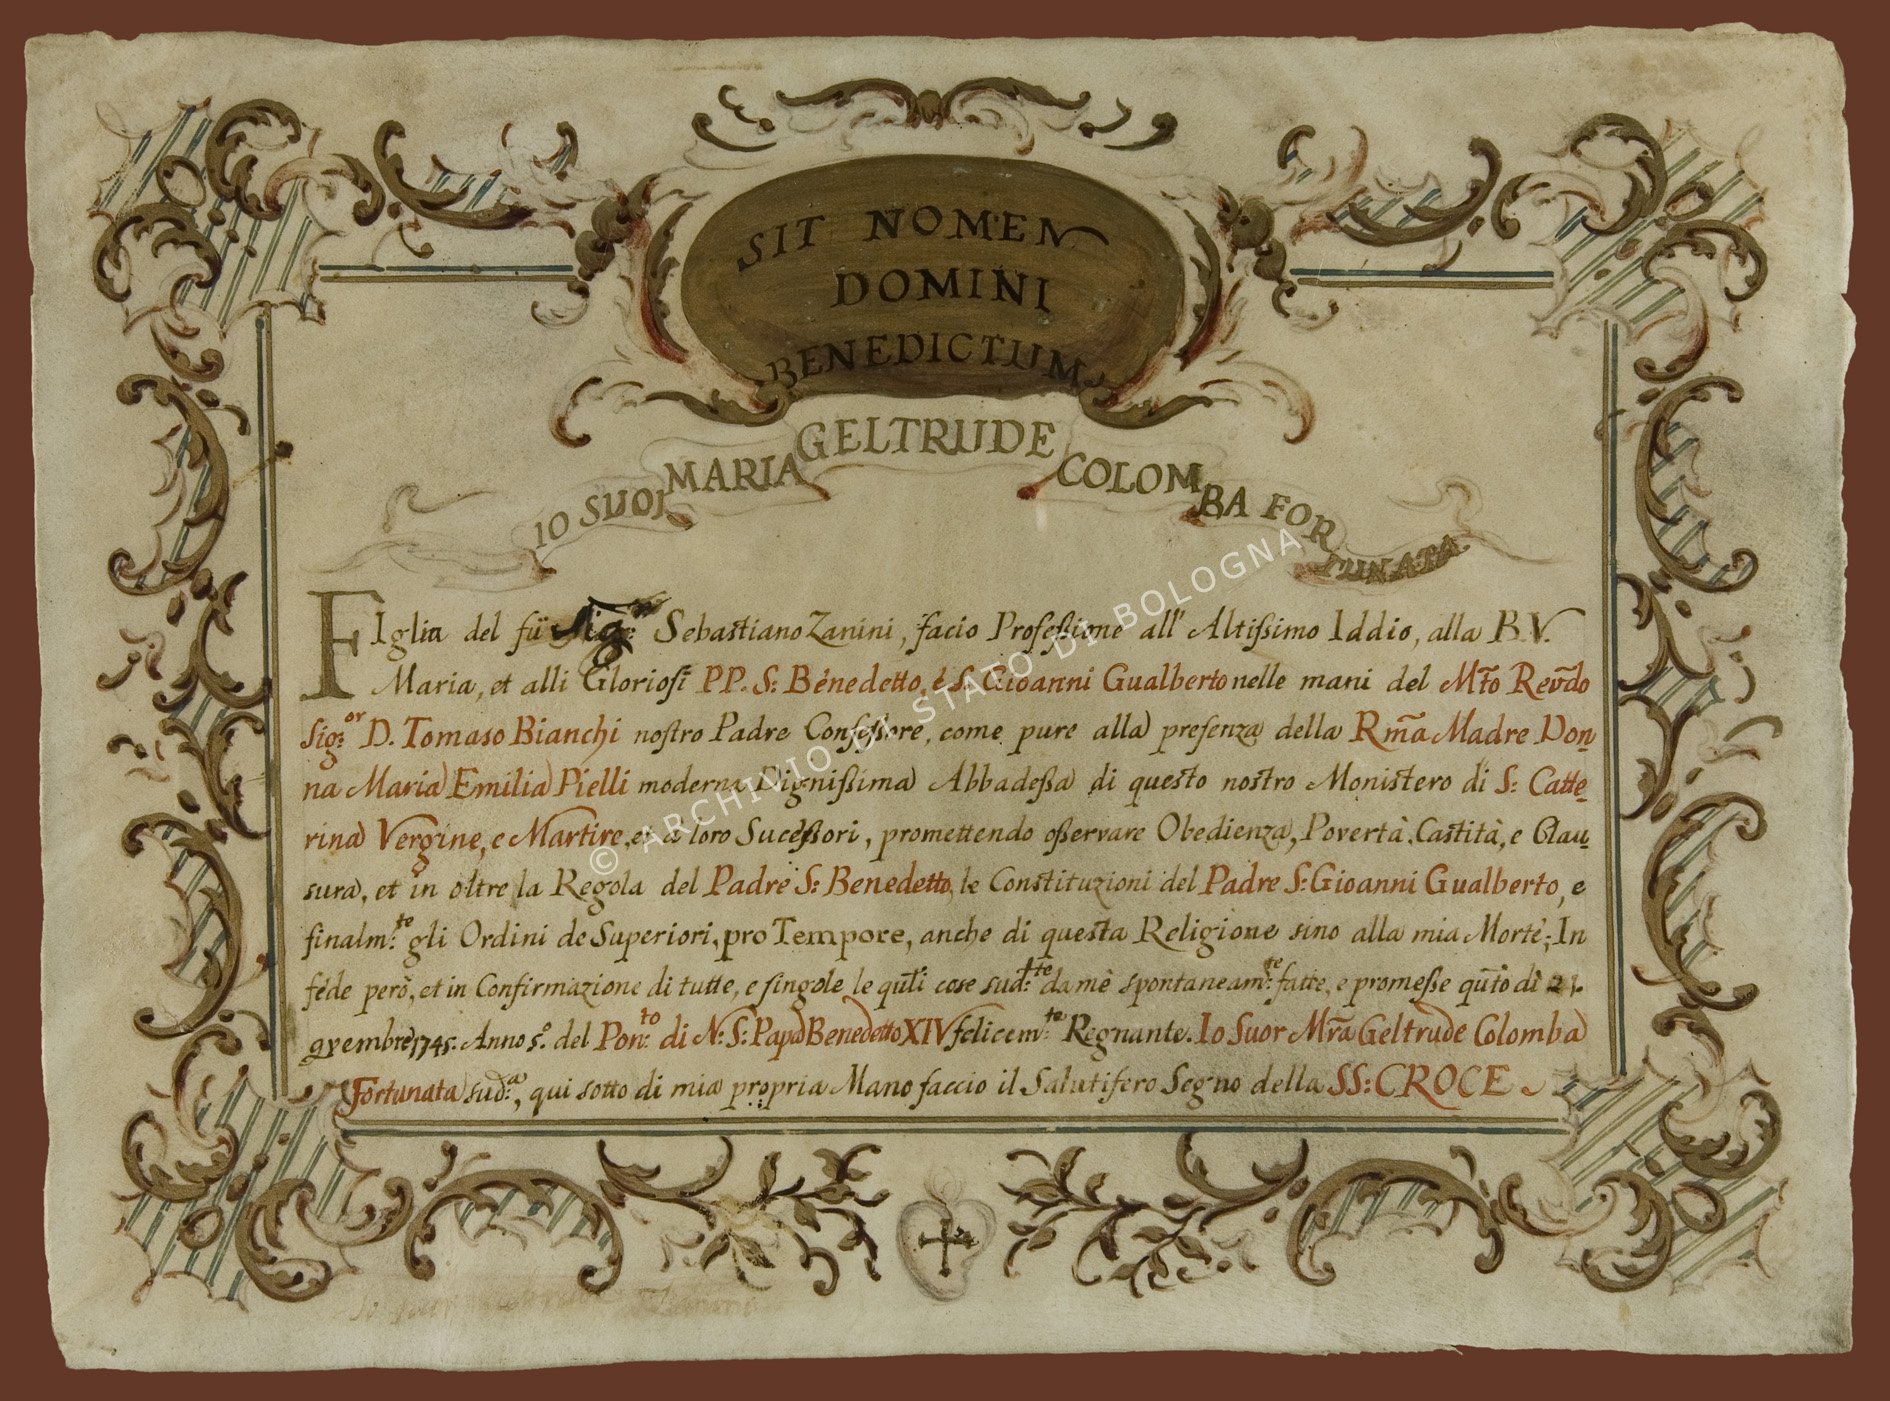 SIT NOMEN
DOMINI
BENEDICTUM
IO SUOR MARIA GELTRUDE COLOMBA FORTUNATA
FIglia del fù Sig.r Sebastiano Zanini, facio Professione all' Altissimo Iddio, alla B.V.
Maria, et alli Gloriosi PP. S: Benedetto, e S: Gioanni Gualberto nelle mani del Mt̃o Revd̃o
Sig:or D. Tomaso Bianchi nostro Padre Confessore, come pure alla presenza della Rm̃a Madre Don=
na Maria Emilia Pielli moderna Dignissima Abbadessa di questo nostro Monistero di S: Catte=
rina Vergine, e Martire, et a loro Sucessori, promettendo osservare Obedienza, Povertà, Castità, e Clau=
sura, et in oltre la Regola del Padre S: Benedetto, le Constituzioni del Padre S: Gioanni Gualberto, e
finalm:te gli Ordini de Superiori, pro Tempore, anche di questa Religione sino alla mia Morte; In
féde però, et in Confirmazione di tutte, e singole le qũli cose sud:tte da mè spontaneam:te fatte, e promesse qũto dì 21.
9vembre 1745. Anno 5.o del Pon:to di N: S: Papa Benedetto XIV felicem:te Regnante. Io Suor Mr̃a Geltrude Colomba
Fortunata sud:a, qui sotto di mia propria Mano faccio il Salutifero Segno della SS: CROCE
© ARCHIVIO DI STATO DI BOLOGNA